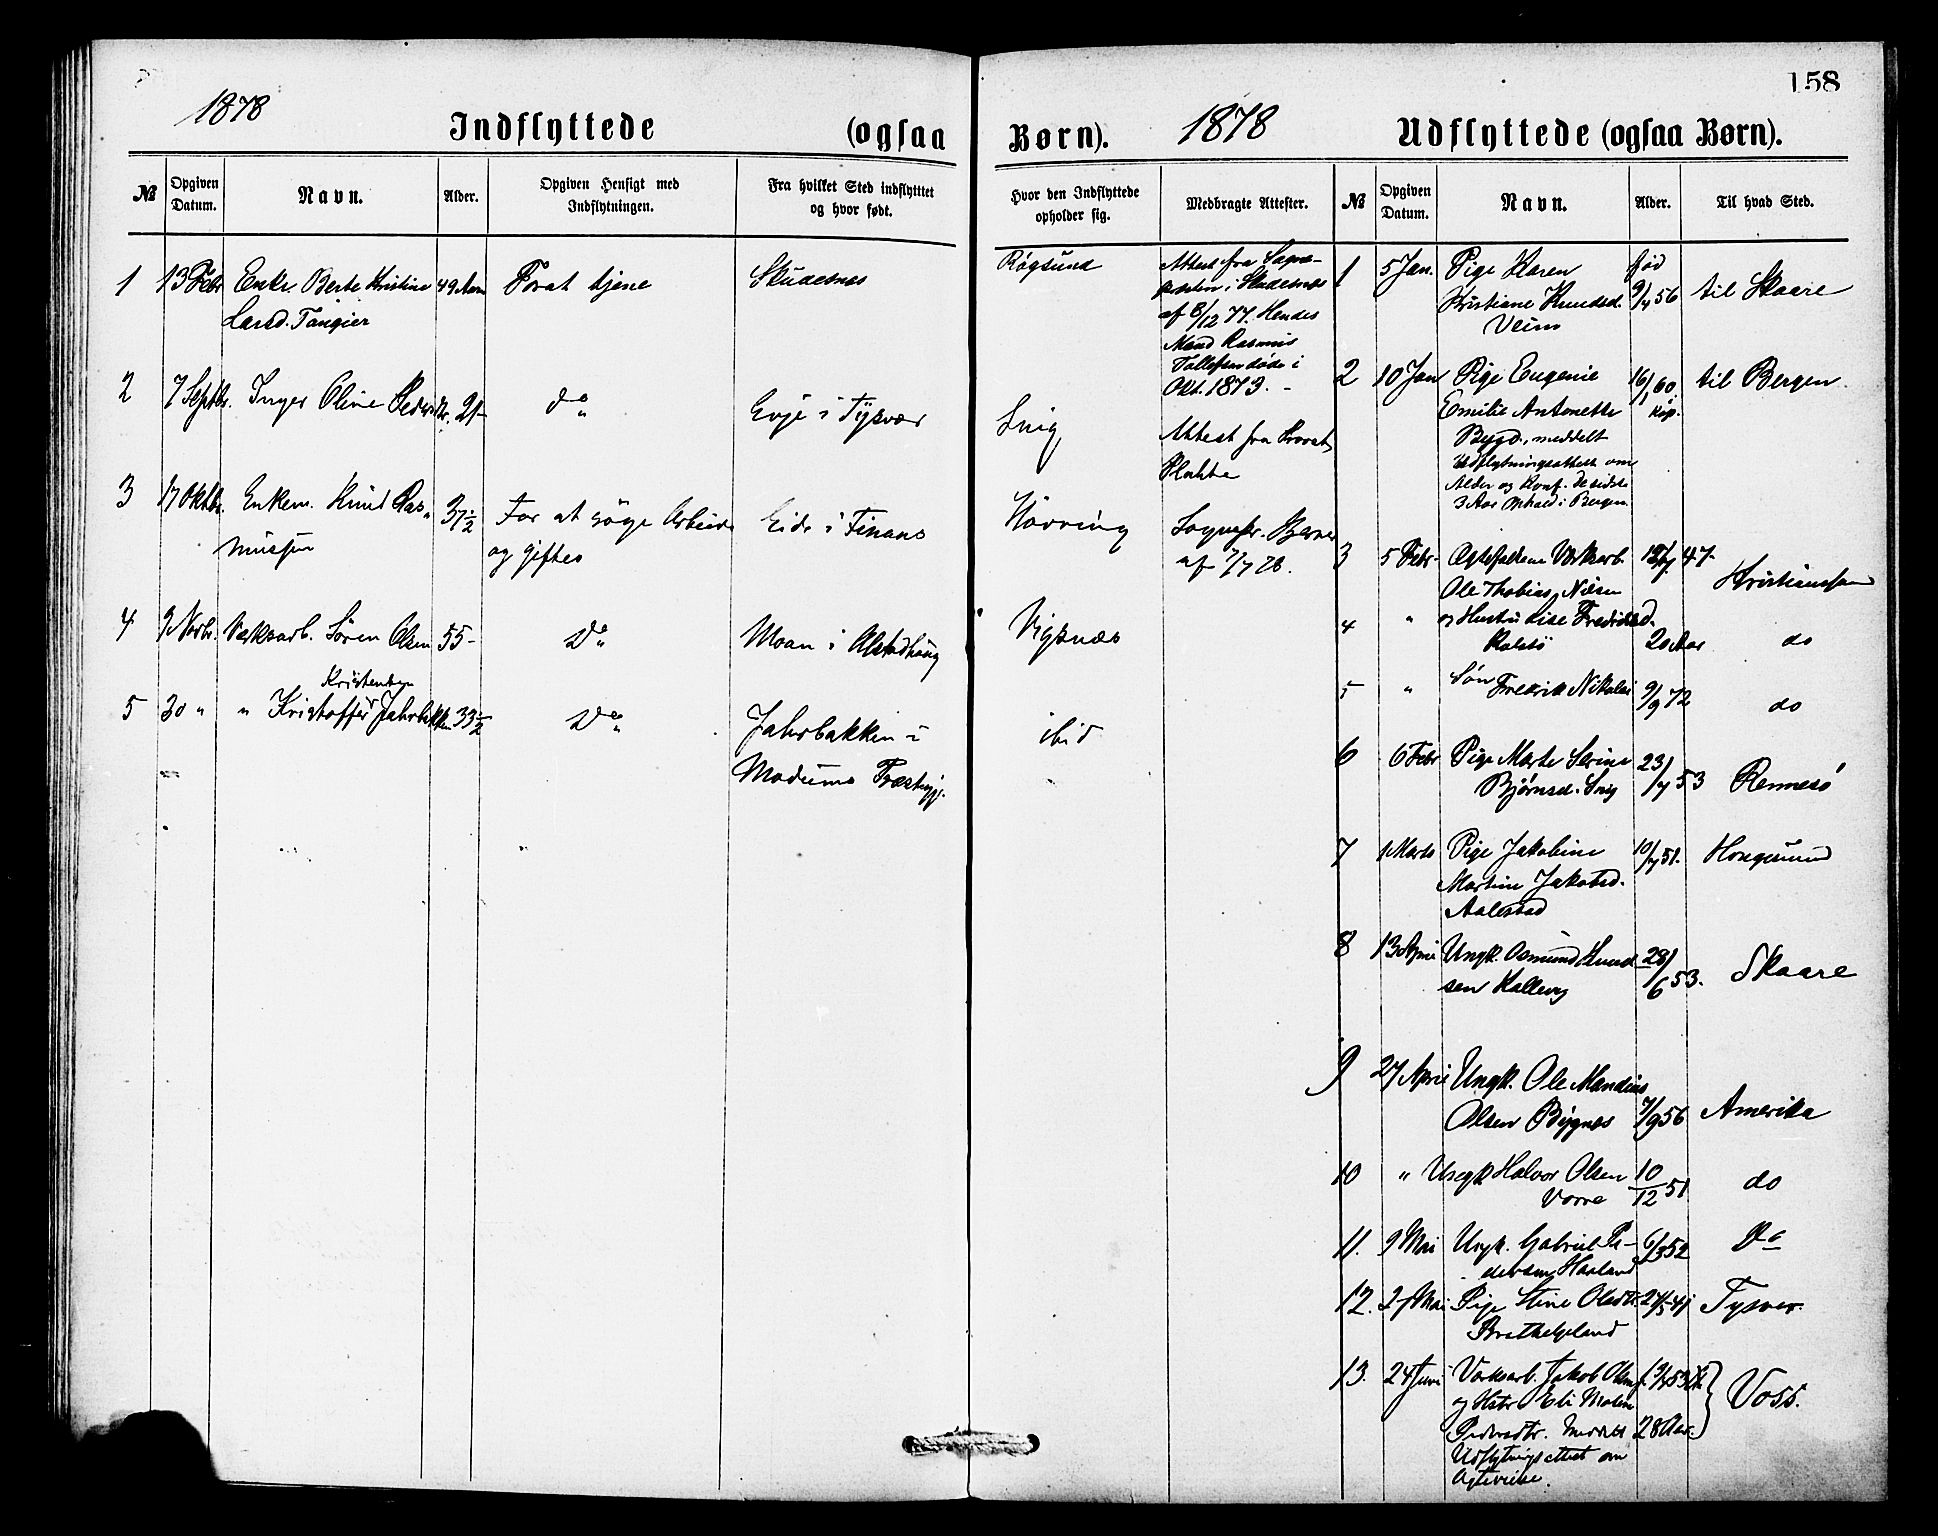 158
1878
Indflyttede (ogsaa Børn).
1878
Udflyttede (ogsaa Børn).
№
Opgiven Datum.
Navn.
Alder.
Opgiven Hensigt med Indflytningen.
Fra hvilket Sted indflyttet og hvor født.
Hvor den Indflyttede opholder sig.
Medbragte Attester.
№
Opgiven Datum.
Navn.
Alder.
Til hvad Sted.
1 13 Febr Enke Berte Kristine 49 Aar For at tjene Skudesnes Røgsund
Larsd. Tangier
Attest fra Sogne-
præsten i Skudesnes
af 8/12 77. Hendes
Mand Rasmus
Tollefsen døde i
Okt. 1873. -
2 7 Septbr. Inger Oline Pedersdtr. 21- do Evje i Tysvær Snig
Attest fra Provst
3 17 Oktbr. Enkem. Knud Ras- 37½ For at søge Arbeide Eide i Finnaas Hövring
mussen og giftes
Sognepr.
af 7/7 78.
4 9 Novbr. Værksarb. Sören Olsen 55- Do Moan i Alstadhaug Vigsnæs
5 30 " " Kristoffer Kristensen Jahrbakken 33½ Do Jahrbakken i ibid
Modums Præstegj.
1 5 Jan. Pige Karen fød
Kristiane Knudsd. 9/4 56 til Skaare
2 10 Jan Pige Eugenie 16/1 60. til Bergen.
Emilie Antonette
Bygd., meddelt
Udflytningsattest om
Alder og Konf. De sidste
3 Aar opholdt i Bergen.
3 5 Febr. Ægtefolkene Værksarb. 47. Kristianssand
Ole Thobias Nilsen
4 " og Hustru Lise Fredriksd.
20 Aar do
5 " Søn Fredrik Nikolai 9/9 72 do
6 6 Febr Pige Marte Serine 23/7 53 Rennesö
Bjørnsd. Snig
7 1 Marts Pige Jakobine 10/7 51. Hougesund
Martine Jakobsd.
Aalestad
8 13 April Ungk. Osmund Knud- 28/6 53. Skaare
sen Kallevig
9 27 April Ungk. Ole Mandius
Olsen Bygnes 7/9 56 Amerika
10 " Ungk Halvor Olsen 10/12 51 do
Vorre
11. 9 Mai Ungk. Gabriel Pe- 6/3 52 Do
dersen Haaland
12. 27 Mai Pige Stine Olsdtr. 24/5 41 Tysver.
Brethelgeland
13. 24 Juni Værksarb. Jakob Olsen Voss.
og Hstr Eli Malene
Pedersdtr. Meddelt 28 Aar.
Udflytningsattest om
Ægtevielse.